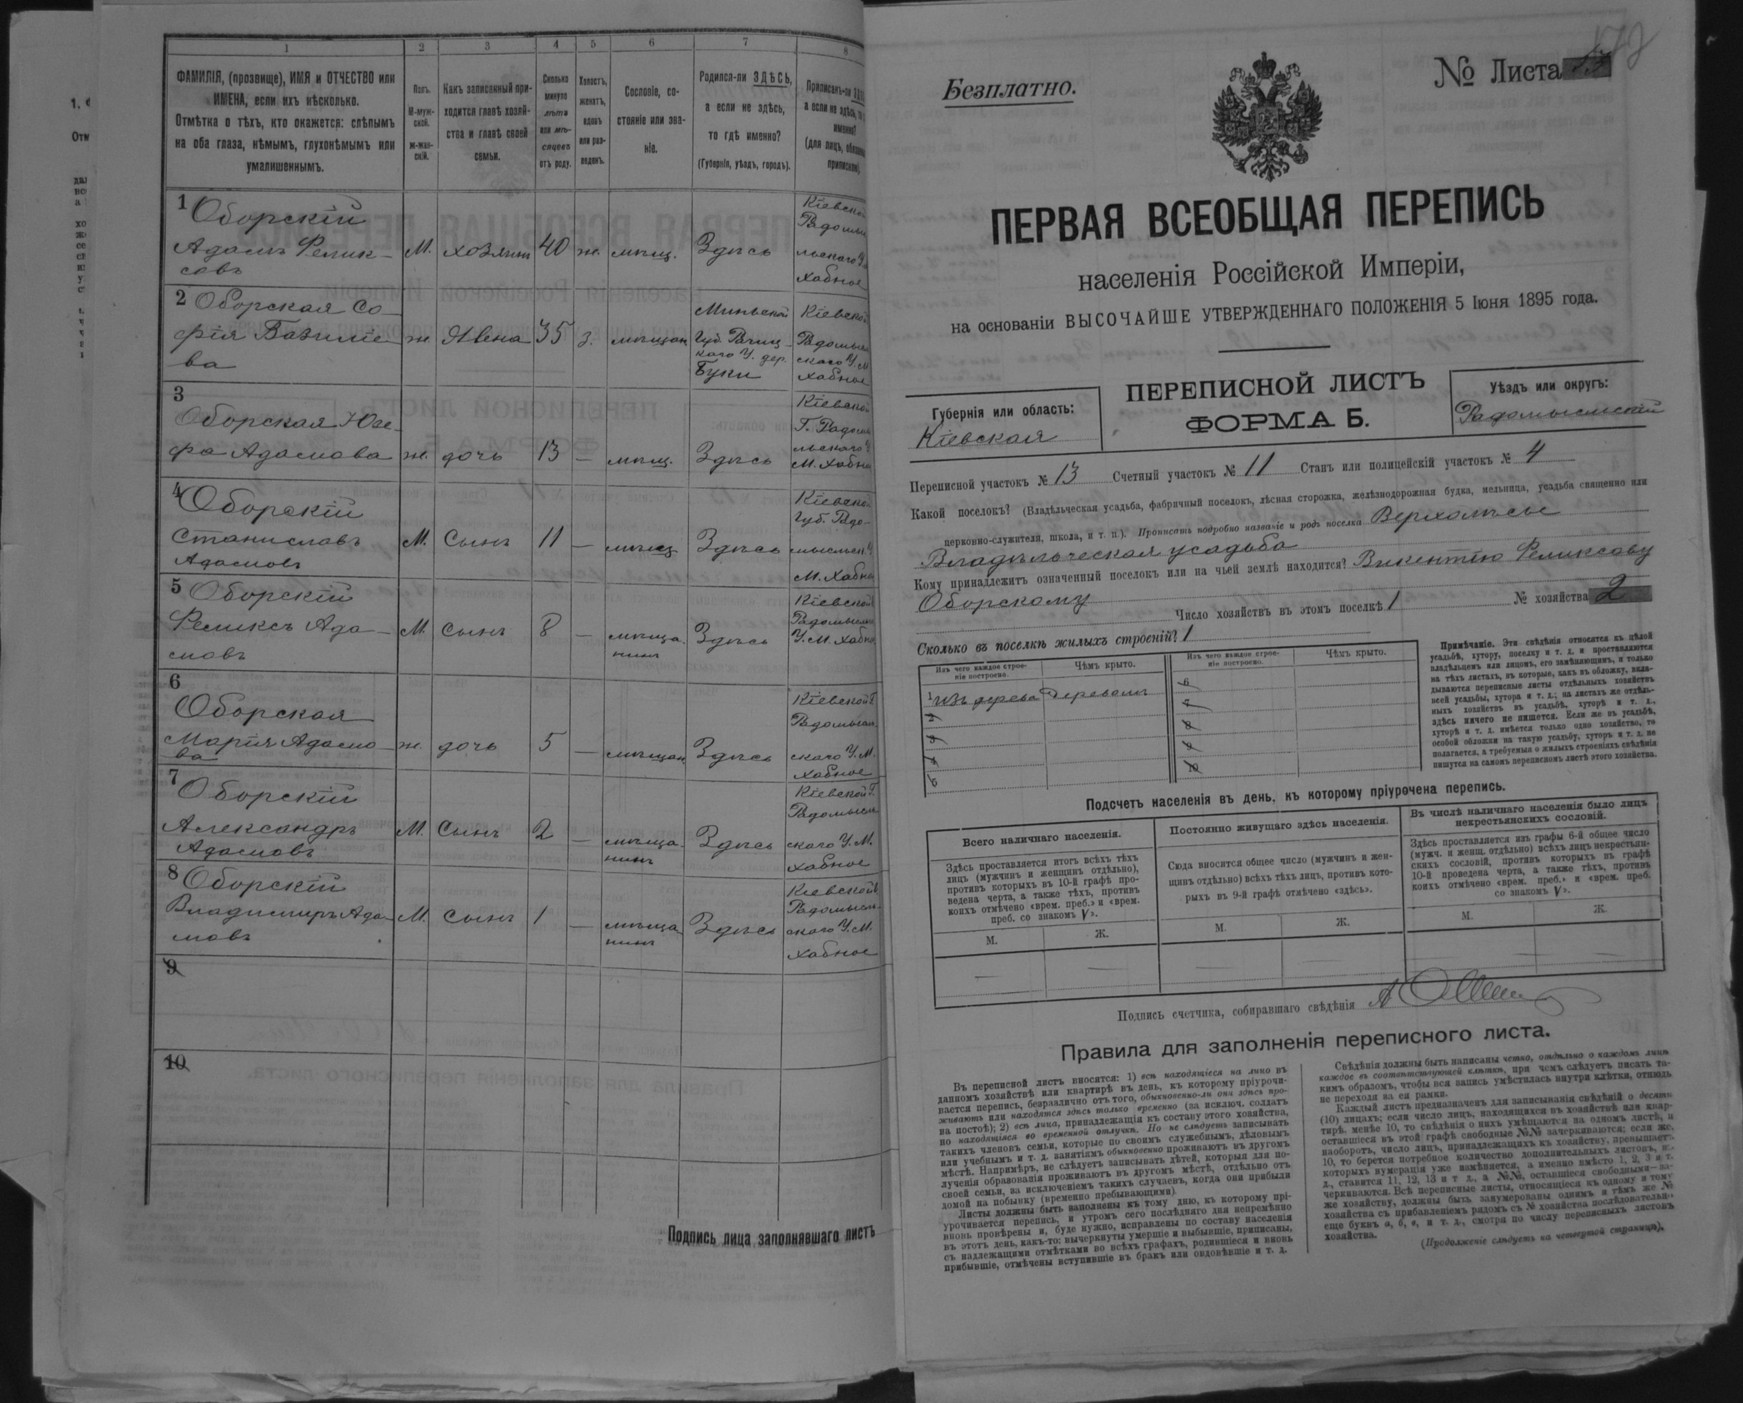 1 2 3 4 5 6 7 8
ФАМИЛІЯ, (прозвище), ИМЯ и ОТЧЕСТВО или
ИМЕНА, если ихъ нѣсколько.
Отмѣтка о тѣхъ, кто окажется: слѣпымъ
на оба глаза, нѣмымъ, глухонѣмымъ или
умалишеннымъ.
Полъ.
М-муж-
ской.
ж-жен-
скій.
Какъ записанный при-
ходится главѣ хозяй-
ства и главѣ своей
семьи.
Сколько
минуло
лѣтъ
или мѣ-
сяцевъ
отъ роду.
Холостъ,
женатъ,
вдовъ
или раз-
веденъ.
Сословіе, со-
стояніе или зва-
ніе.
Родился-ли ЗДѢСЬ,
а если не здѣсь,
то гдѣ именно?
(Губернія, уѣздъ, городъ).
Приписанъ-ли
а если не здѣсь, то
именно?
(для лицъ,
припискою)
1 Оборскій
Адамъ Феликсовъ
М. хозяинъ 40 ж. мѣщ. Здѣсь
Кіевской
Радомы
льскаго У.
Хабное
2 Оборская Со-
фія Базиліе-
ва
ж. Жена 35 з. мѣщан
Миньской
Губ. Речиц-
каго У. дер.
Буки
Кіевской
Радомыль
скаго У. М
Хабное
3
Оборская Юзе-
фа Адамова ж. дочь 13 — мѣщ. Здѣсь
Кіевской
Г. Радом
льскаго У
М. Хабно
4 Оборскій
Станиславъ
Адамовъ
М. Сынъ 11 — мѣщ Здѣсь
Кіевской
Губ. Радо-
мысльск. У
М. Хабно
5 Оборскій
Феликсъ Ада-
мовъ
М. Сынъ 8 — мѣща
нинъ
Здѣсь
Кіевской
Радомысль
У. М. Хабно
6
Оборская
Марія Адамо-
ва
ж. дочь 5 — мѣщан Здѣсь
Кіевской Г.
Радомысл
скаго У. М.
Хабное
7 Оборскій
Александръ
Адамовъ
М. Сынъ 2 — мѣща
нинъ
Здѣсь
Кіевской Г.
Радомысл
скаго У. М.
Хабное
8 Оборскій
Владимиръ Ада-
мовъ
М. Сынъ 1 — мѣща
нинъ
Здѣсь
Кіевской Г.
Радомысл-
скаго У. М.
Хабное
9
10
Подпись лица заполнявшаго листъ
Безплатно.
№ Листа
ПЕРВАЯ ВСЕОБЩАЯ ПЕРЕПИСЬ
населенія Россійской Имперіи,
на основаніи ВЫСОЧАЙШЕ УТВЕРЖДЕННАГО ПОЛОЖЕНІЯ 5 Іюня 1895 года.
Губернія или область:
Кіевская
ПЕРЕПИСНОЙ ЛИСТЪ
ФОРМА Б.
Уѣздъ или округъ:
Радомысльскій
Переписной участокъ № 13 Счетный участокъ № 11 Станъ или полицейскій участокъ № 4
Какой поселокъ? (Владѣльческая усадьба, фабричный поселокъ, лѣсная сторожка, желѣзнодорожная будка, мельница, усадьба священно или
церковно-служителя, школа, и т. п.). Прописать подробно названіе и родъ поселка Верхолѣсье
Владѣльческая усадьба
Кому принадлежитъ означенный поселокъ или на чьей землѣ находится? Викентію Феликсову
Оборскому
Число хозяйствъ въ этомъ поселкѣ 1 № хозяйства 2
Сколько въ поселкѣ жилыхъ строеній? 1
Изъ чего каждое строе-
ніе построено. Чѣмъ крыто.
Изъ чего каждое строе-
ніе построено. Чѣмъ крыто.
1 Изъ дерева Деревомъ
Примѣчаніе. Эти свѣдѣнія относятся къ цѣлой
усадьбѣ, хутору, поселку и т. д. и проставляются
владѣльцемъ или лицомъ, его замѣняющимъ, и только
на тѣхъ листахъ, въ которые, какъ въ обложку, вкла-
дываются переписные листы отдѣльныхъ хозяйствъ
всей усадьбы, хутора и т. д.; на листахъ же отдѣль-
ныхъ хозяйствъ въ усадьбѣ, хуторѣ и т. д.,
здѣсь ничего не пишется. Если же въ усадьбѣ,
хуторѣ и т. д. имѣется только одно хозяйство, то
особой обложки на такую усадьбу, хуторъ и т. д. не
полагается, а требуемыя о жилыхъ строеніяхъ свѣдѣнія
пишутся на самомъ переписномъ листѣ этого хозяйства.
Подсчетъ населенія въ день, къ которому пріурочена перепись.
Всего наличнаго населенія.
Здѣсь проставляется итогъ всѣхъ тѣхъ
лицъ (мужчинъ и женщинъ отдѣльно),
противъ которыхъ въ 10-й графѣ про-
ведена черта, а также тѣхъ, противъ
коихъ отмѣчено «врем. преб.» и «врем.
преб. со знакомъ V».
М. Ж.
Постоянно живущаго здѣсь населенія.
Сюда вносится общее число (мужчинъ и жен-
щинъ отдѣльно) всѣхъ тѣхъ лицъ, противъ кото-
рыхъ въ 9-й графѣ отмѣчено «здѣсь».
М. Ж.
Въ числѣ наличнаго населенія было лицъ
некрестьянскихъ сословій.
Здѣсь проставляется изъ графы 6-й общее число
(мужч. и женщ. отдѣльно) всѣхъ лицъ некрестьян-
скихъ сословій, противъ которыхъ въ графѣ
10-й проведена черта, а также тѣхъ, противъ
коихъ отмѣчено «врем. преб.» и «врем. преб.
со знакомъ V».
М. Ж.
Подпись счетчика, собиравшаго свѣдѣнія
Правила для заполненія переписного листа.
Въ переписной листъ вносятся: 1) всѣ находящіеся на лицо въ
данномъ хозяйствѣ или квартирѣ въ день, къ которому пріурочи-
вается перепись, безразлично отъ того, обыкновенно-ли они здѣсь про-
живаютъ или находятся здѣсь только временно (за исключ. солдатъ
на постоѣ); 2) всѣ лица, принадлежащія къ составу этого хозяйства,
но находящіяся во временной отлучкѣ. Но не слѣдуетъ записывать
такихъ членовъ семьи, которые по своимъ служебнымъ, дѣловымъ
или учебнымъ и т. д. занятіямъ обыкновенно проживаютъ въ другомъ
мѣстѣ. Напримѣръ, не слѣдуетъ записывать дѣтей, которыя для по-
лученія образованія проживаютъ въ другомъ мѣстѣ, отдѣльно отъ
своей семьи, за исключеніемъ такихъ случаевъ, когда они прибыли
домой на побывку (временно пребывающими).
Листы должны быть заполнены къ тому дню, къ которому прі-
урочивается перепись, и утромъ сего послѣдняго дня непремѣнно
вновь провѣрены и, буде нужно, исправлены по составу населенія
въ этотъ день, какъ-то: вычеркнуты умершіе и выбывшіе, приписаны,
съ надлежащими отмѣтками во всѣхъ графахъ, родившіеся и вновь
прибывшіе, отмѣчены вступившіе въ бракъ или овдовѣвшіе и т. д.
Свѣдѣнія должны быть написаны четко, отдѣльно о каждомъ лицѣ
каждое въ соотвѣтствующей клѣткѣ, при чемъ слѣдуетъ писать та-
кимъ образомъ, чтобы вся запись умѣстилась внутри клѣтки, отнюдь
не переходя за ея рамки.
Каждый листъ предназначенъ для записыванія свѣдѣній о десяти
(10) лицахъ; если число лицъ, находящихся въ хозяйствѣ или квар-
тирѣ, менѣе 10, то свѣдѣнія о нихъ умѣщаются на одномъ листѣ, и
оставшіеся въ этой графѣ свободные №№ зачеркиваются; если же,
наоборотъ, число лицъ, принадлежащихъ къ хозяйству, превышаетъ
10, то берется потребное количество дополнительныхъ листовъ, въ
которыхъ нумерація уже измѣняется, а именно вмѣсто 1, 2, 3 и т.
д., ставится 11, 12, 13 и т. д., а №№, оставшіеся свободными—за-
черкиваются. Всѣ переписные листы, относящіеся къ одному и тому
же хозяйству, должны быть занумерованы однимъ и тѣмъ же №
хозяйства съ прибавленіемъ рядомъ съ № хозяйства послѣдовательно
еще буквъ а, б, в, и т. д., смотря по числу переписныхъ листовъ
хозяйства.
(Продолженіе слѣдуетъ на четвертой страницѣ).